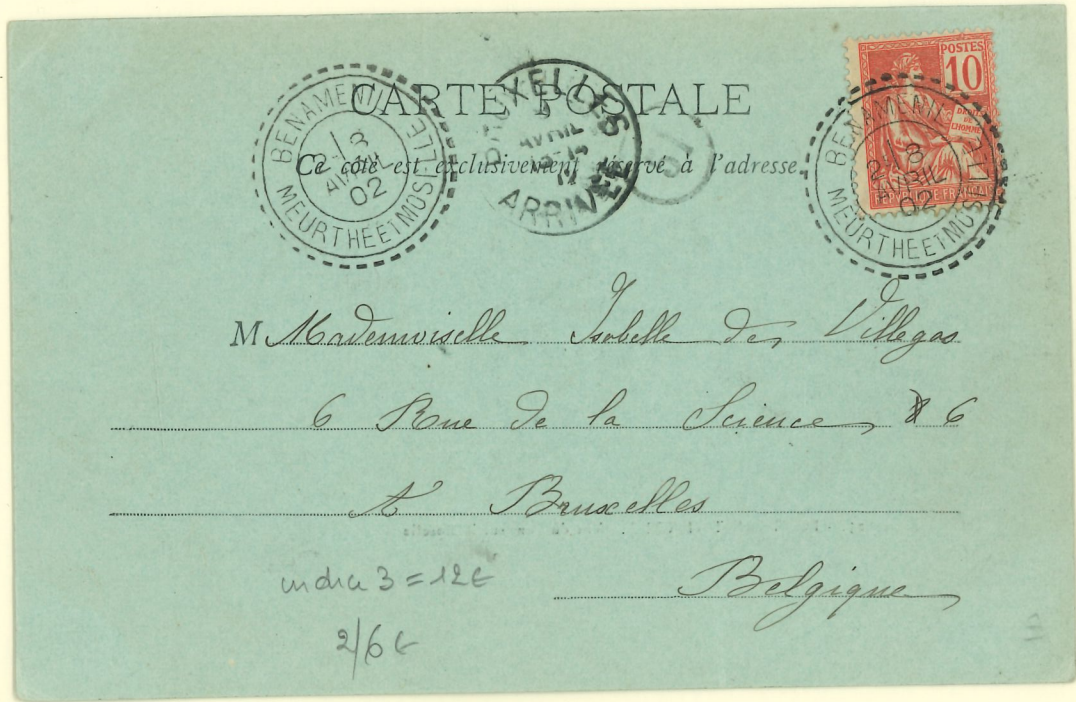 CARTE POSTALE
Ce côté est exclusivement réservé à l'adresse
BENAMENIL
18
2
AVRIL
02
MEURTHE ET MOSELLE
BRUXELLES
AVRIL
ARRIVEE
POSTES
10
DROITS
DE
L'HOMME
REPUBLIQUE FRANÇAISE
BENAMENIL
18
2
AVRIL
02
MEURTHE ET MOSELLE
M Mademoiselle Isabelle de Villegas
6 Rue de la Science 6
A Bruxelles
Belgique
indice 3 = 12€
2/6€